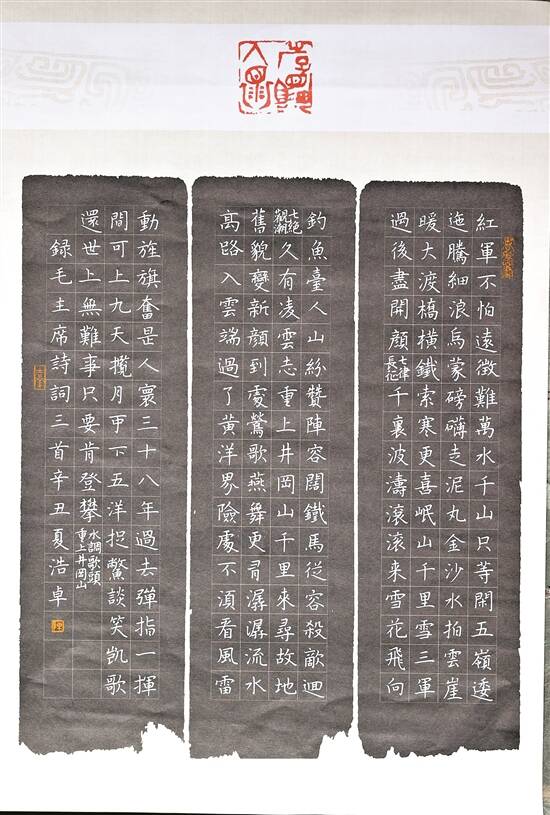 紅軍不怕遠徵難萬水千山只等閑五嶺逶
迤騰細浪烏蒙磅礴走泥丸金沙水拍雲崖
暖大渡橋橫鐵索寒更喜岷山千里雪三軍
過後盡開顔七律長征千裏波濤滾滾来雪花飛向
釣魚臺人山紛贊陣容闊鐵馬従容殺敵迴
七絕觀潮久有凌雲志重上井岡山千里來尋故地
舊貌變新顔到處鶯歌燕舞更有潺潺流水
高路入雲端過了黃洋界險處不須看風雷
動旌旗奮是人寰三十八年過去彈指一揮
間可上九天攬月甲下五洋捉鱉談笑凱歌
還世上無難事只要肯登攀水調歌頭重上井岡山
録毛主席詩詞三首辛丑夏浩卓